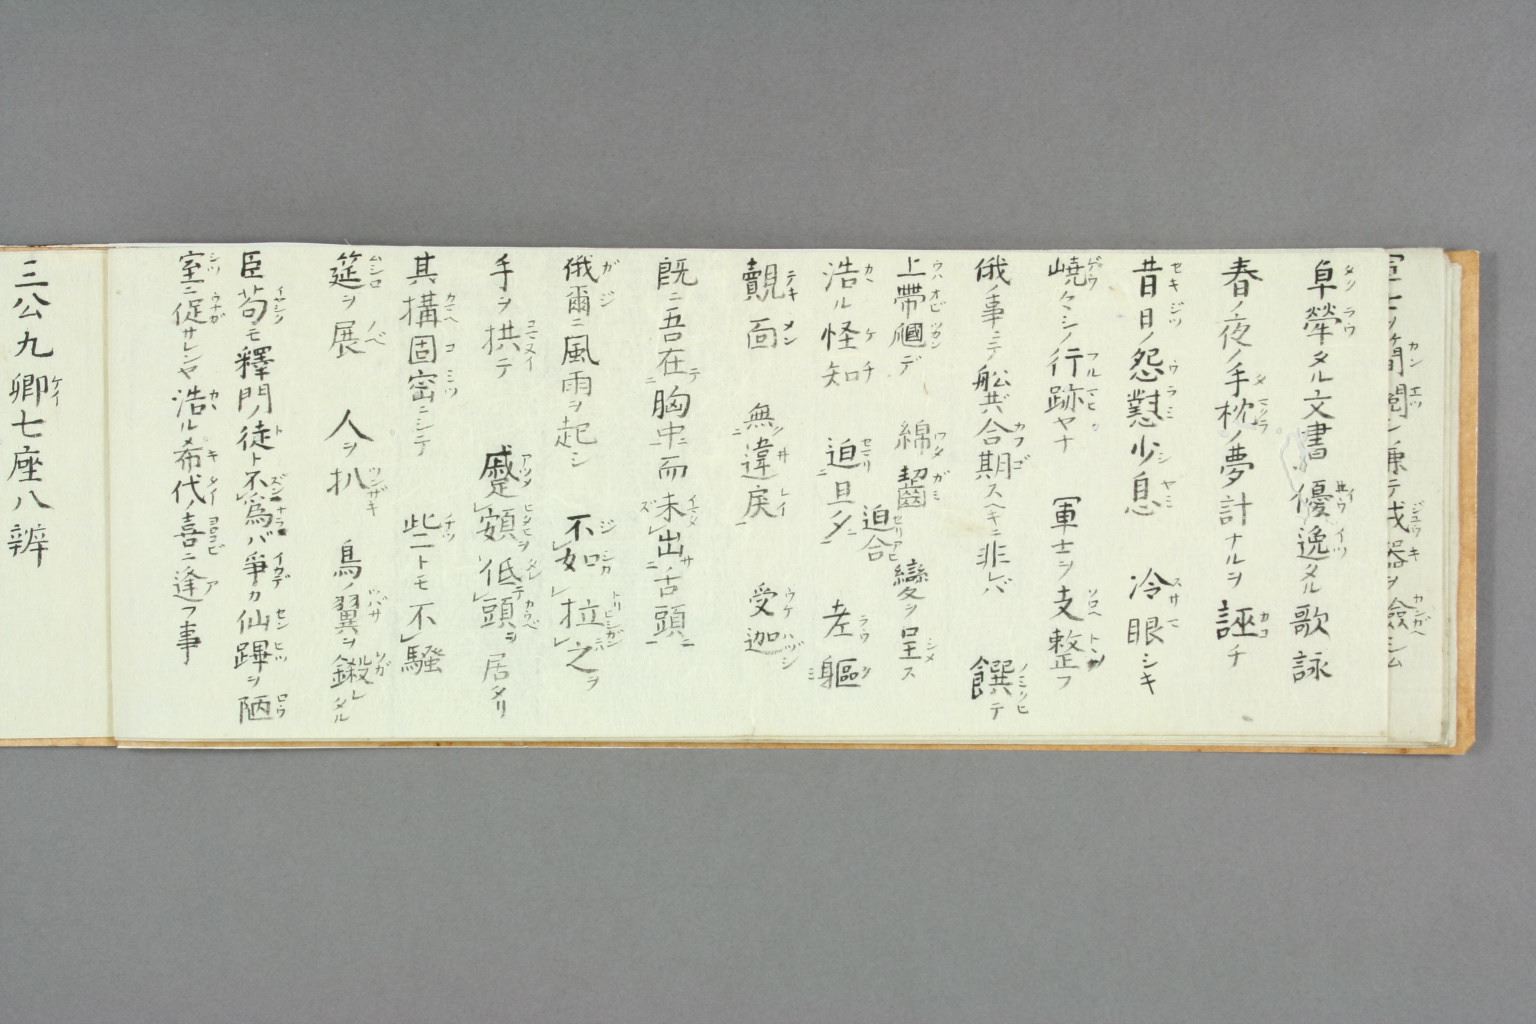 軍士ヲ簡閲シ兼テ戎器ヲ撿シム
阜犖タル文書 優逸タル歌詠
春ノ夜ノ手枕ノ夢計ナルヲ誣チ
昔日ノ怨懟少息 冷眼シキ
嶢々シノ行跡ヤナ 軍士ヲ支整フ
俄ノ事ニテ舩共合期スヘキニ非レバ 饌ハテ
上帶 デ 綿齧 變ヲ呈ス
浩ル怪知 迫旦夕 迫合 老軀
覿面 無違戻 受迦
既ニ吾在胸中而未出舌頭
俄爾ニ風雨ヲ起シ 不如拉之ヲ
手ヲ拱テ 蹙頞低頭ヲ居タリ
其構固密ニシテ 些トモ不騷
筵ヲ展 人ヲ扒 鳥翼ヲ鎩レタル
臣苟モ釋門ノ徒ト不爲バ爭カ仙蹕ヲ陋
室ニ促サレンヤ浩ル希代ノ喜ニ逢フ事
三公九卿七座八辨